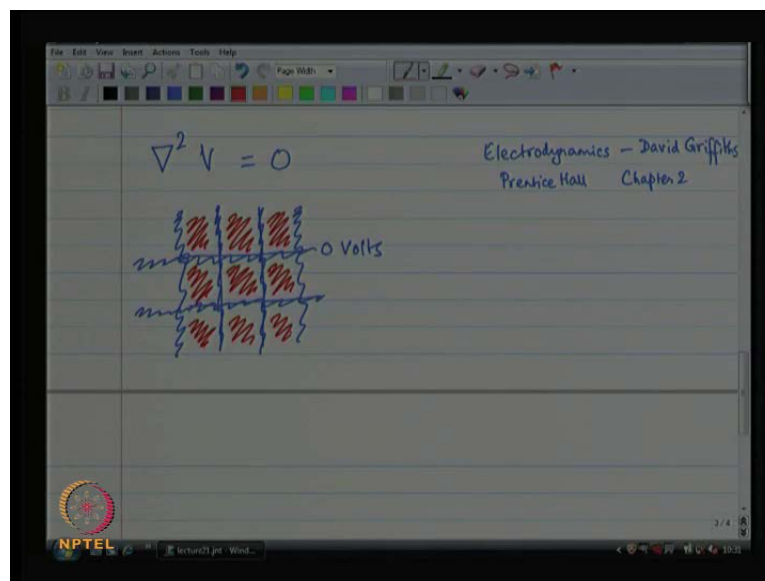 File Edit View Insert Actions Tools Help
Page Width
B I
∇² V = 0
Electrodynamics – David Griffiths
Prentice Hall Chapter 2
0 Volts
3/4
NPTEL
lecture21.jnt - Wind...
10:31